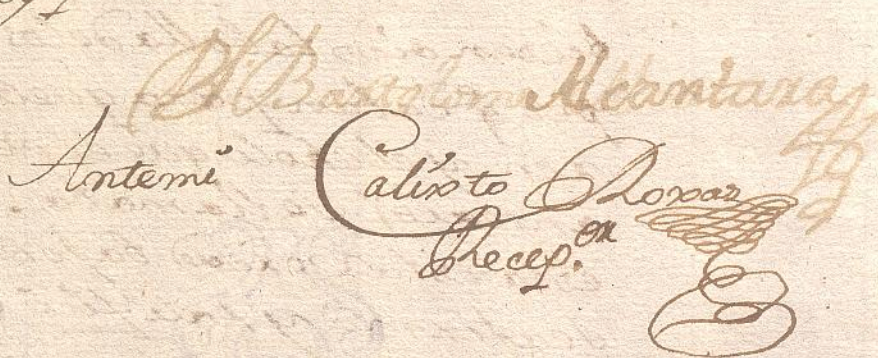 Dn. Bartolome Alcantara
Antemi Calixto Roxas
Recep.or